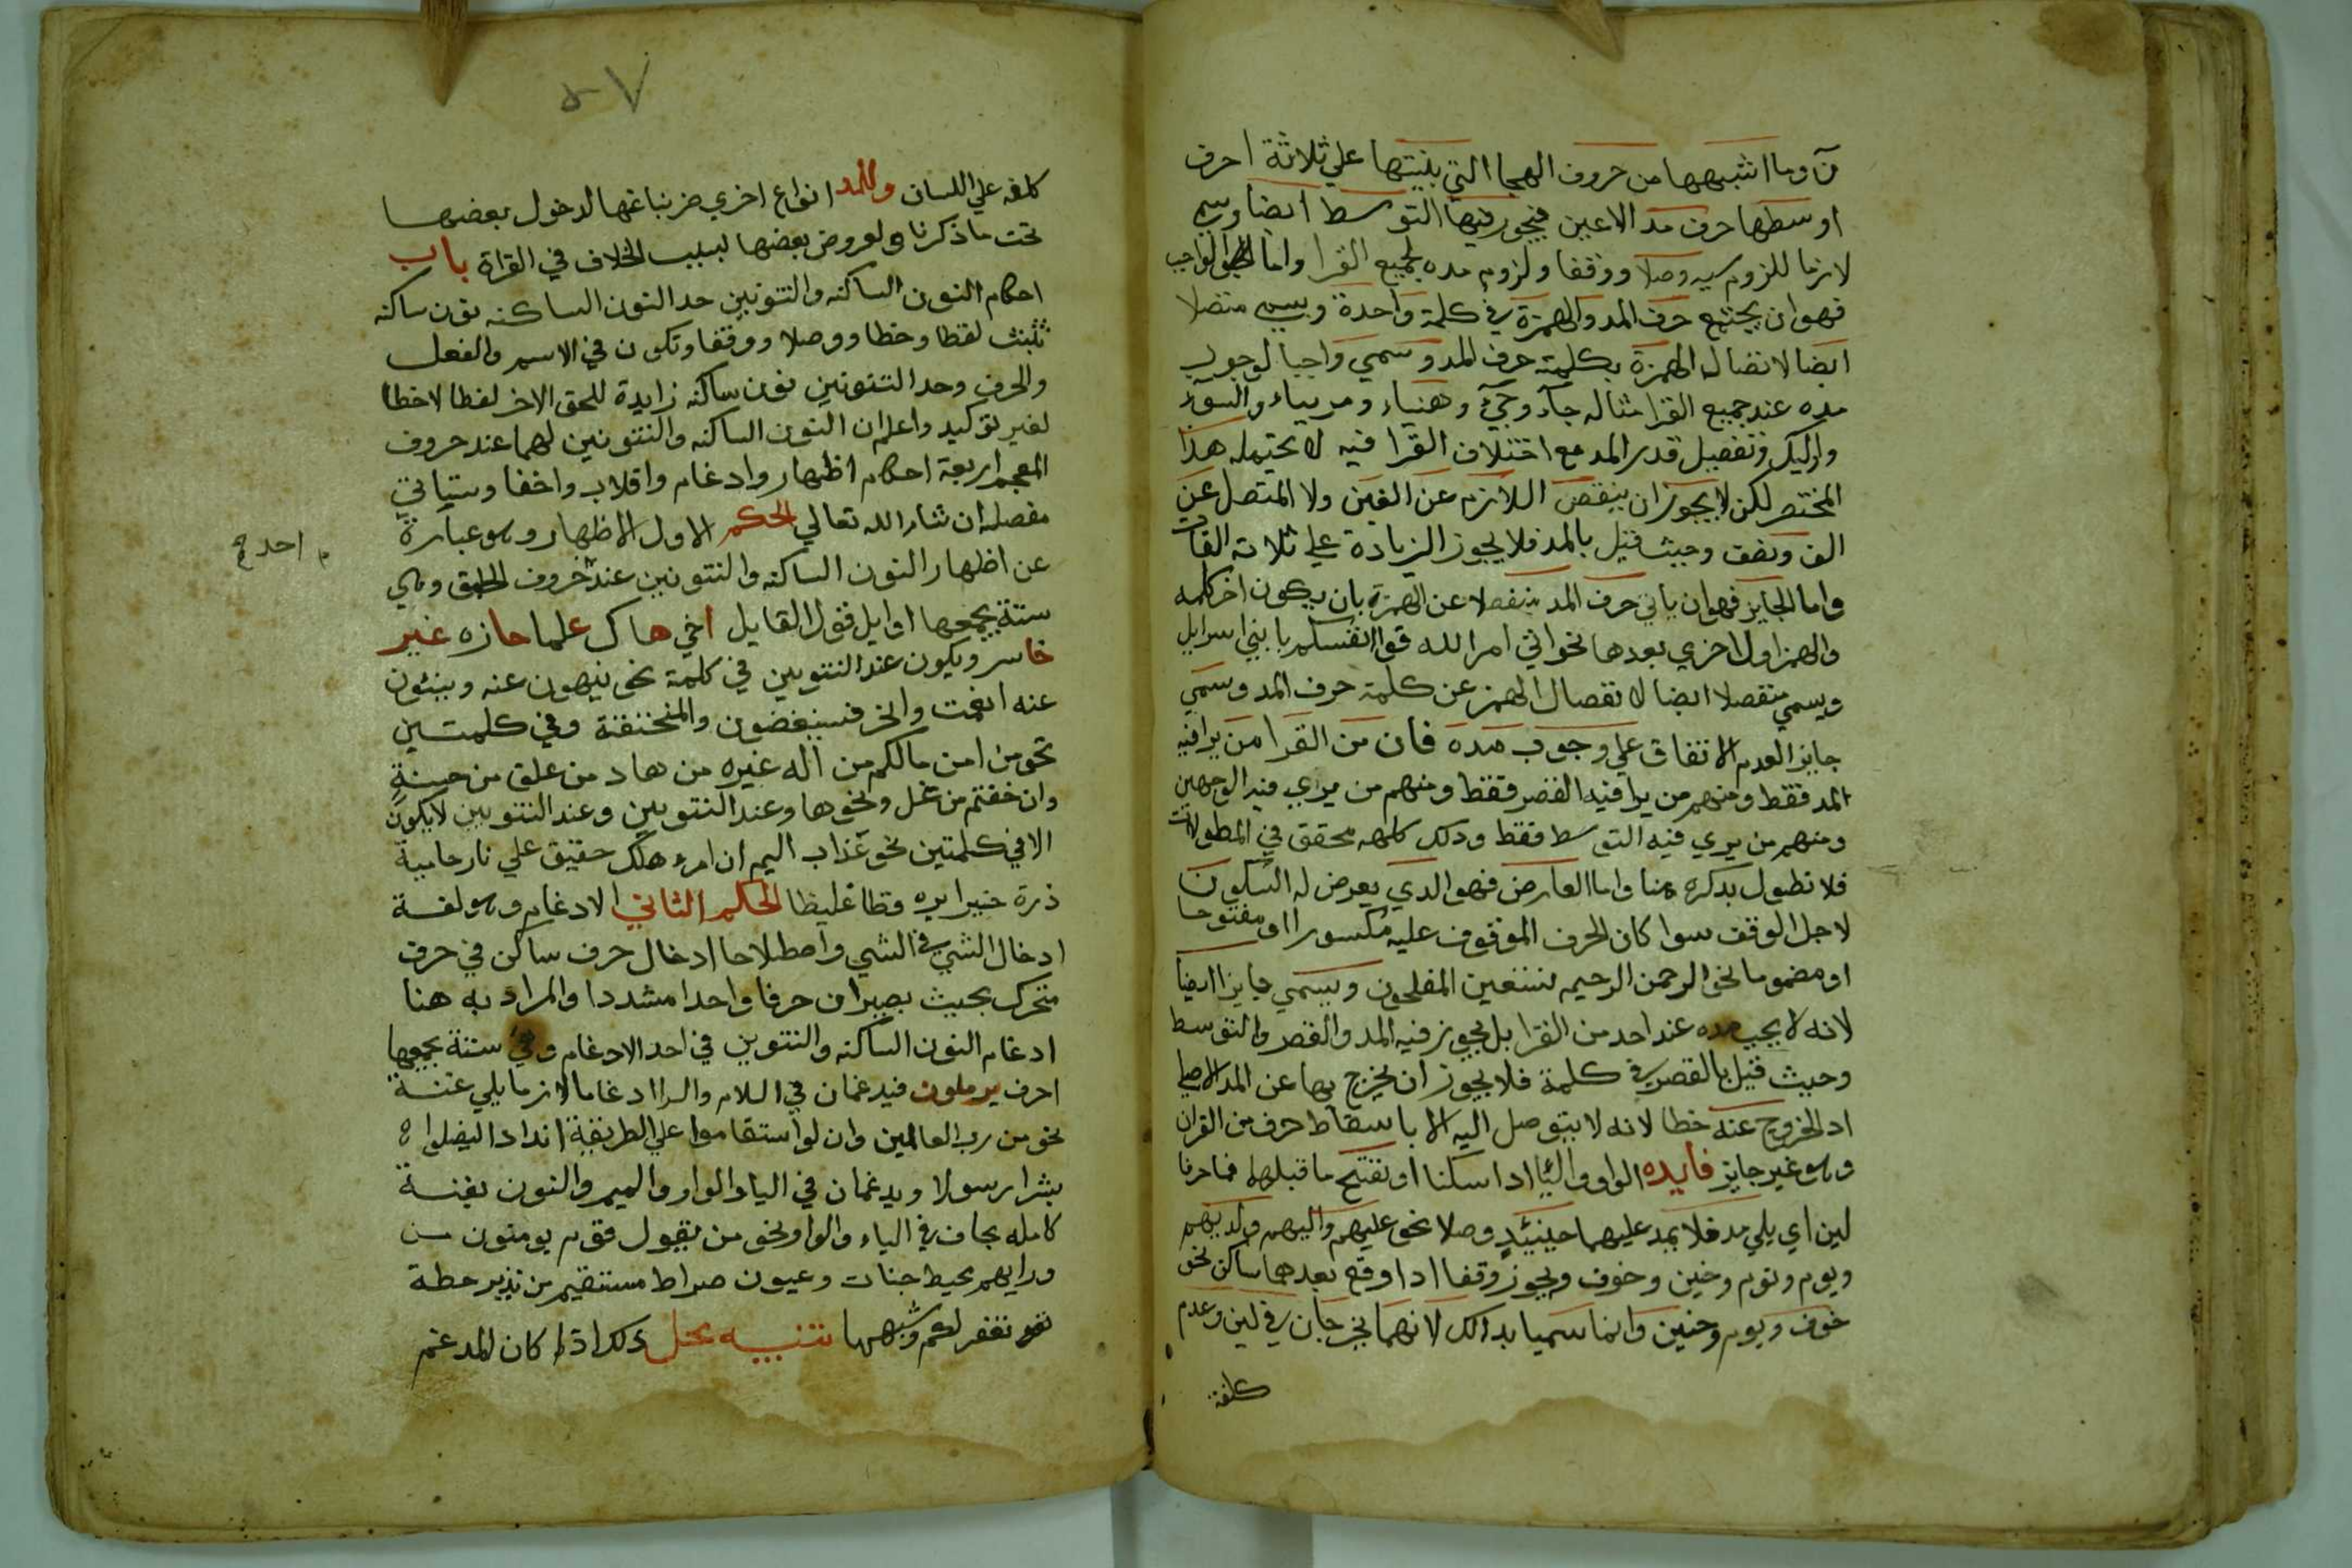 نٓ وما اشبهها من حروف الهجا التي بنيتها علي ثلاثة احرف
اوسطها حرف مد الاعين فيجوز فيها التوسط ايضا ويسمي
لازما للزوم سببه وصلا ووقفا ولزوم مده لجميع القرا واما الواجب
فهو ان يجتمع حرف المد والهمزة في كلمة واحدة ويسمي متصلا
ايضا لاتصال الهمزة بكلمة حرف المد وسمي واجبا لوجوب
مده عند جميع القرا مثاله جآء وجيٓء وهنياء ومرياء والسوٓء
واوليك وتفصيل قدر المد مع اختلاف القرا فيه لا يحتمله هذا
المختصر لكن لا يجوز ان ينقص اللازم عن الفين ولا المتصل عن
الف ونصف وحيث قيل بالمد فلا يجوز الزيادة علي ثلاثة الفات
واما الجايز فهو ان ياتي حرف المد منفصلا عن الهمزة بان يكون اخر كلمه
والهمز اول اخري بعدها نحو اتي امر الله قوا انفسكم يا بني اسرايل
ويسمي منفصلا ايضا لانفصال الهمز عن كلمة حرف المد وسمي
جايز العدم الاتفاق علي وجوب مده فان من القرا من يرا فيه
المد فقط ومنهم من يرا فيه القصر فقط ومنهم من يري فيه الوجهين
ومنهم من يري فيه التوسط فقط وذلك كله محقق في المطولات
فلا نطول بذكره هنا واما العارض فهو الذي يعرض له السكون
لاجل الوقف سوا كان الحرف الموقوف عليه مكسورا او مفتوحا
او مضموما نحو الرحمن الرحيم نستعين المفلحون ويسمي جايزا ايضا
لانه لا يجب مده عند احد من القرا بل يجوز فيه المد والقصر والتوسط
وحيث قيل بالقصر في كلمة فلا يجوز ان يخرج بها عن المد الاصلي
اد الخروج عنه خطا لانه لا يتوصل اليه الا باسقاط حرف من القران
وهو غير جايز فايده الواو واليا ادا سكنا او نفتح ما قبلهما فهما حرفا
لين اي يلي مد فلا يمد عليهما حينيذ وصلا نحو عليهم واليهم ولديهم
ويوم ونوم وخين وخوف ويجوز وقفا ادا وقع بعدهما ساكن نحو
خوف ويوم وحنين وانما سميا بدالك لانهما يخرجان في لين وعدم
كلفة
٥٧
كلفه علي اللسان وللمد انواع اخري ضربنا عنها لدخول بعضها
تحت ما ذكرنا ولعروض بعضها لسبب الخلاف في القراة باب
احكام النون الساكنه والتنوين حد النون الساكنه نون ساكنه
تثبت لفظا وخطا ووصلا ووقفا وتكون في الاسم والفعل
والحرف وحد التنوين نون ساكنه زايدة تلحق الاخر لفظا لا خطا
لغير توكيد واعلم ان النون الساكنه والتنوين لهما عند حروف
المعجم اربعة احكام اظهار وادغام واقلاب واخفا وستياتي
مفصله ان شاء الله تعالي الحكم الاول الاظهار وهو عبارة
عن اظهار النون الساكنه والتنوين عند حروف الحلق وهي
م احد ح
ستة يجمعها اوايل قول القايل اخي هاك علما حازه غير
خاسر ويكون عند التنوين في كلمة نحو ينهون عنه وينئون
عنه انعمت وانحر فسينغضون والمنخنقة وفي كلمتين
نحو من امن مالكم من اله غيره من هاد من علق من حسنة
وان خفتم من غل ونحوها وعند التنوين وعند التنوين لا يكون
الا في كلمتين نحو عذاب اليم ان امرء هلك حقيق علي نار حامية
ذرة خيرا يره فظا غليظا الحكم الثاني الادغام وهو لغة
ادخال الشي في الشي واصطلاحا ادخال حرف ساكن في حرف
متحرك بحيث يصيران حرفا واحدا مشددا والمراد به هنا
ادغام النون الساكنه والتنوين في احد الادغام وهي ستة يجمعها
احرف يرملون فيدغمان في اللام والرا ادغاما لازما بلي غنة
نحو من رب العالمين وان لو استقاموا علي الطريقة اندادا ليضلوا
بشرا رسولا ويدغمان في اليا والواو والميم والنون بغنة
كامله بجاف في الياء والواو نحو من يقول قوم يومنون من
ورايهم محيط جنات وعيون صراط مستقيم من نذير حطة
نغفر لكم وشبهها تنبيه محل ذلك اذا كان المدغم